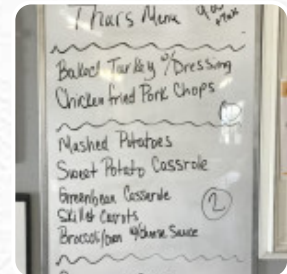 Thurs Menu
Baked Turkey w/Dressing
Chicken fried Pork Chops
Mashed Potatoes
Sweet Potato Cassrole
Greenbean Casserole
Skillet Carrots
Broccoli/corn w/cheese Sauce
2